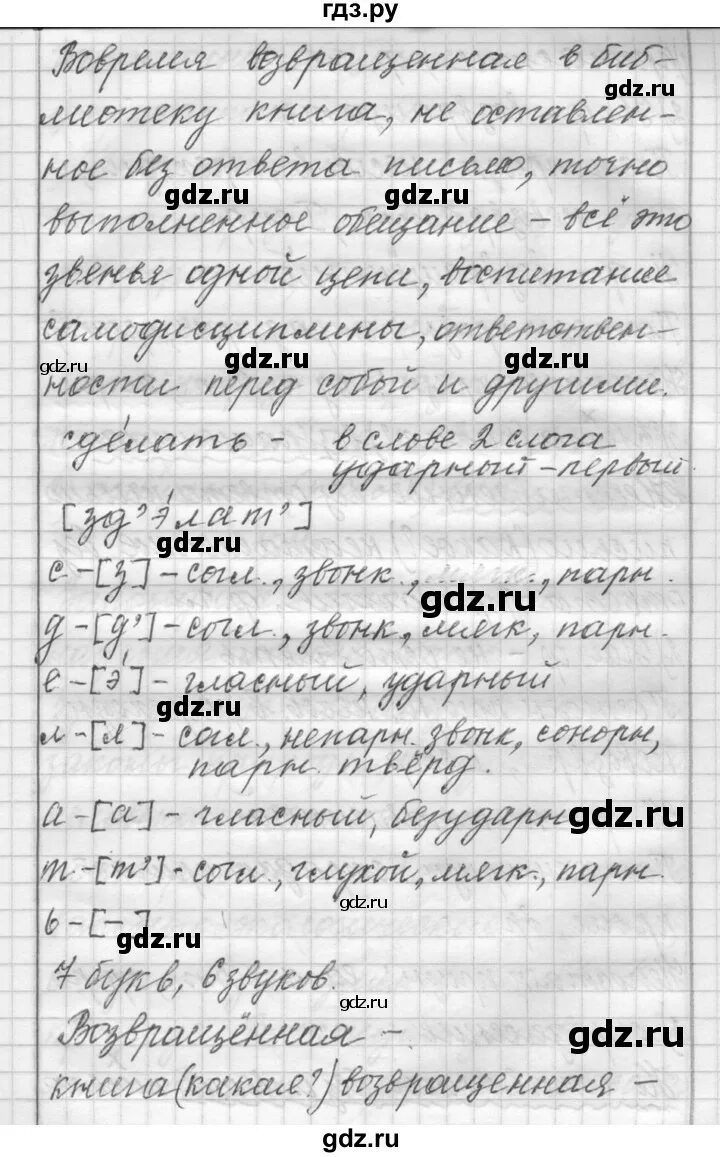 гдз.ру
Вовремя возвращенная в биб-
gdz.ru
лиотеку книга, не оставлен-
ное без ответа письмо, точно
gdz.ru gdz.ru
выполненное обещание – всё это
звенья одной цепи, воспитание
самодисциплины, ответствен-
gdz.ru gdz.ru gdz.ru
ности перед собой и другими.
сде́лать – в слове 2 слога
ударный – первый
[зд’э́лат’]
gdz.ru
с – [з] – согл., звонк., парн.
gdz.ru
д – [д’] – согл., звонк, мягк, парн.
е – [э́] – гласный, ударный
gdz.ru
л – [л] – согл., непарн. звонк, сонорн,
парн. твёрд.
а – [а] – гласный, безударн
gdz.ru
т – [т’] – согл., глухой, мягк., парн.
gdz.ru
ь – [–]
gdz.ru
7 букв, 6 звуков.
gdz.ru
Возвращённая –
gdz.ru
книга (какая?) возвращенная –
gdz.ru